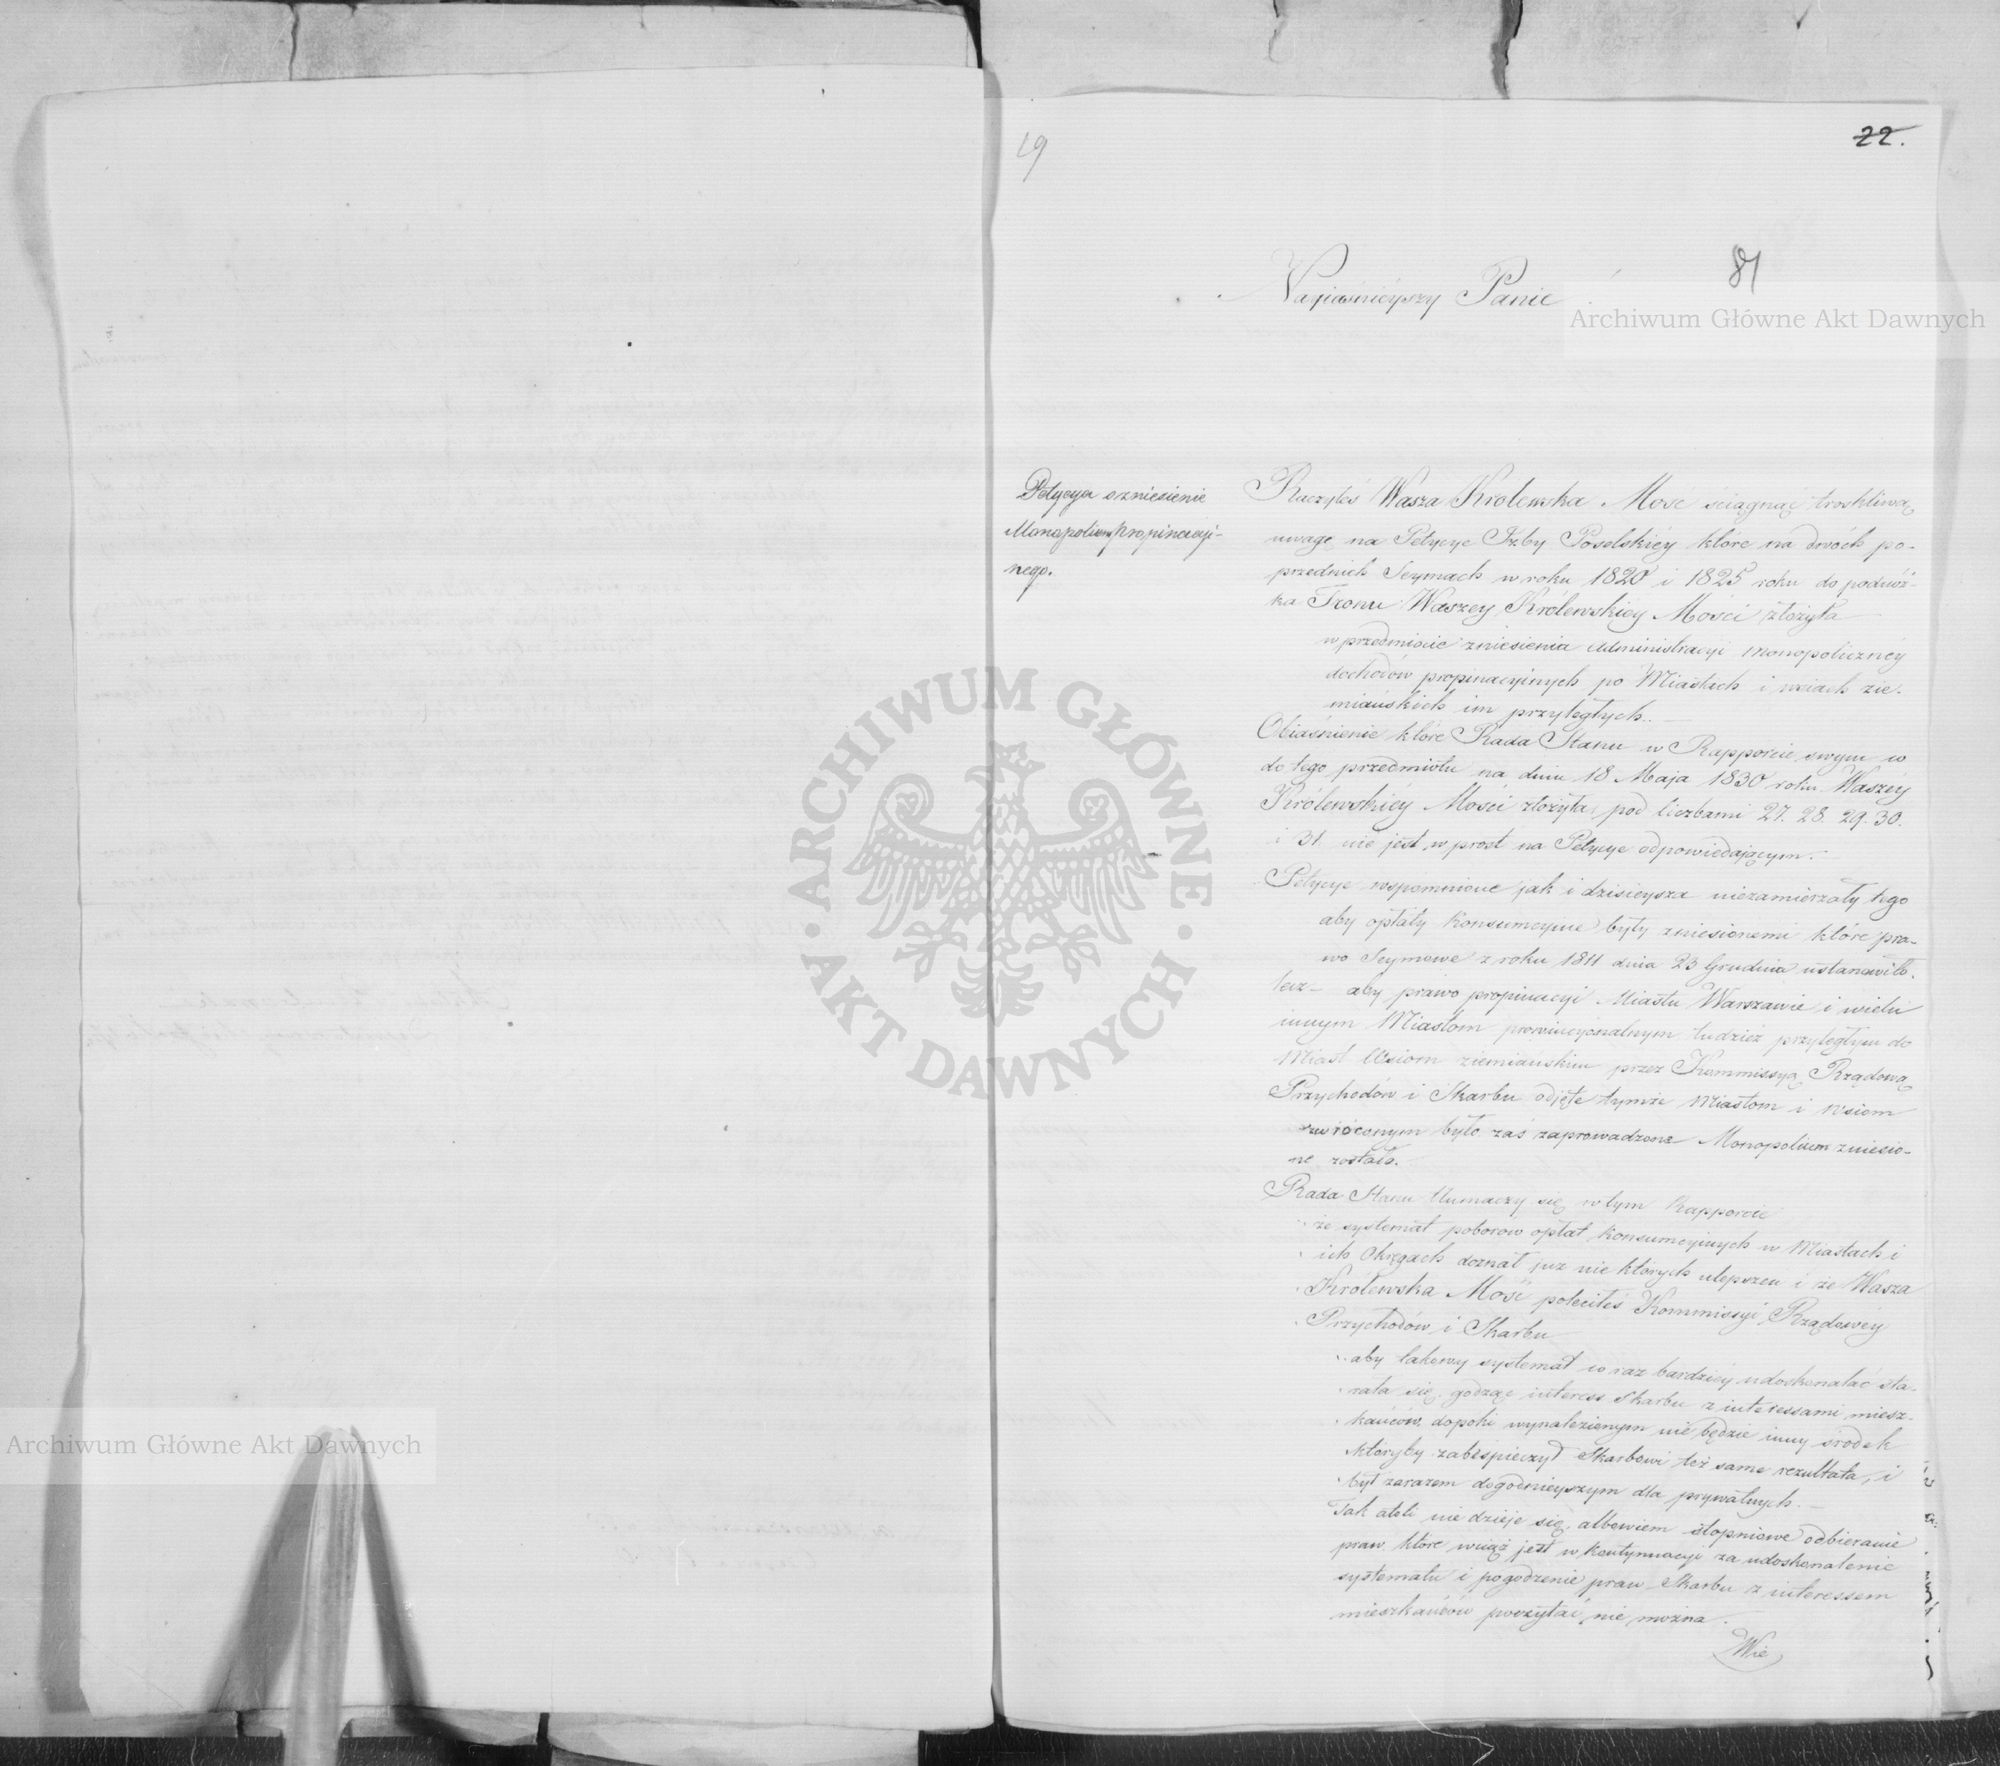 19
22.
81
Nayiaśnieyszy Panie
Archiwum Główne Akt Dawnych
Petycya o zniesienie
Monopolium Propinacyi-
nego.
Raczyłeś Wasza Krolewska Mosc sciągnąć troskliwą
uwagę na Petycye Izby Poselskiey które na dwóch po-
przednich Seymach w roku 1820 i 1825 roku do podnóż-
ka Tronu Waszey Królewskiey Mości złożyła
w przedmiocie zniesienia administracyi monopoliczney
dochodów propinacyinych po Miastach i wsiach zie-
miańskich im przyległych.
Obiaśnienie które Rada Stanu w Rapporcie swym co
do tego przedmiotu na dniu 18 Maja 1830 roku Waszéy
Królewskiéy Mości złożyła pod liczbami 27. 28. 29. 30.
i 31. nie jest w prost na Petycye odpowiedającym.
Petycye wspomnione jak i dzisieysza niezamierzały tego
aby opłaty konsumcyine były zniesionemi które pra-
wo Seymowe z roku 1811 dnia 23 Grudnia ustanowiło.
lecz – aby prawo propinacyi Miastu Warszawie i wielu
innym Miastom prowincyonalnym tudzież przyległym do
Miast Wsiom ziemiańskim przez Kommissyą Rządową
Przychodów i Skarbu odjęte tymże Miastom i Wsiom
zwróconym było zaś zaprowadzone Monopolium zniesio-
ne zostało.
Rada Stanu tłumaczy się w tym Rapporcie
że systemat poborow opłat konsumcyinych w Miastach i
ich Okręgach doznał juz nie których ulepszeń i że Wasza
Krolewska Mość poleciłeś Kommissyi Rządowéy
Przychodów i Skarbu
aby takowy systemat co raz bardziey udoskonalać sta-
rała się godząc interess Skarbu z interessami miesz-
kańców, dopoki wynalezionym nie będzie inny środek
któryby zabespieczył Skarbowi też same rezultata, i
był zarazem dogodnieyszym dla prywatnych. –
Tak atoli nie dzieje się, albowiem stopniowe odbieranie
praw, które wciąż jest w kontynuacyi za udoskonalenie
systematu i pogodzenie praw Skarbu z interessem
mieszkańców poczytać nie można.
Wie
ARCHIWUM GŁÓWNE AKT DAWNYCH
Archiwum Główne Akt Dawnych